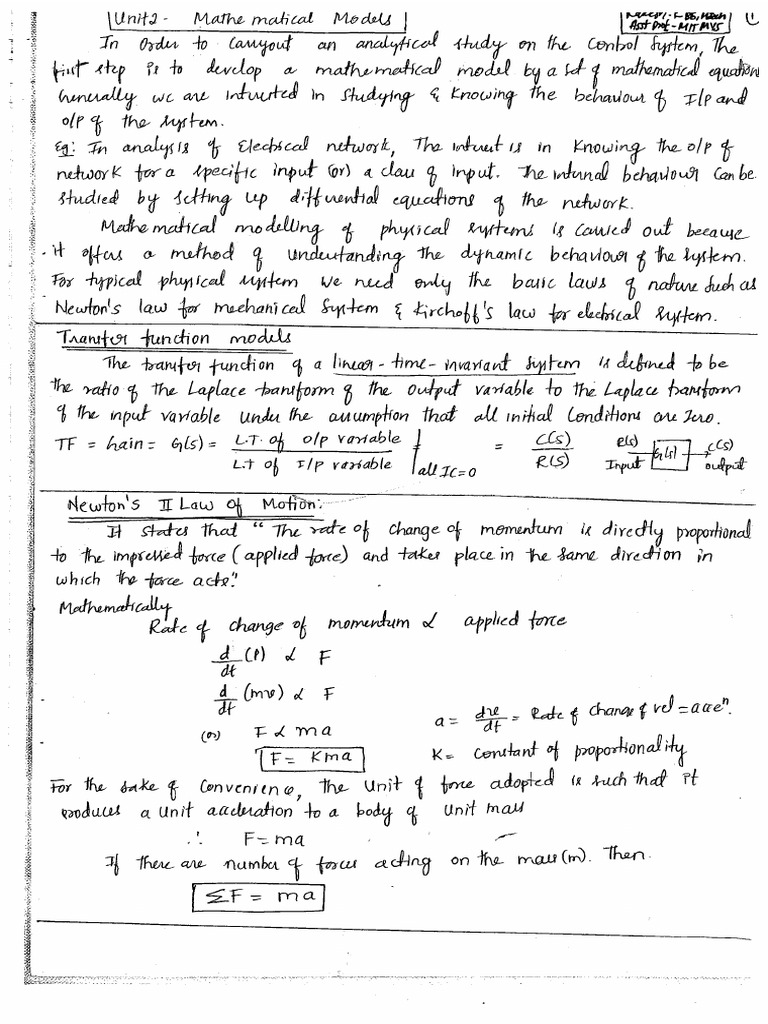 Unit 2 - Mathematical Models
Asst Prof - MIT MYS
1
In Order to Carryout an analytical study on the Control System, The
first step is to develop a mathematical model by a set of mathematical equations
Generally we are intrested in studying & Knowing the behaviour of I/p and
o/p of the system.
Eg: In analysis of Electrical network, The intrest is in Knowing the o/p of
network for a specific input (or) a class of input. The internal behaviour Can be
studied by setting up differential equations of the network.
Mathematical modelling of physical systems is carried out because
it offers a method of understanding the dynamic behaviour of the system.
For typical physical system we need only the basic laws of nature Such as
Newton's law for mechanical System & Kirchoff's law for electrical system.
Transfer function models
The transfer function of a linear-time-invariant system is defined to be
the ratio of the Laplace transform of the output variable to the Laplace transform
of the input variable under the assumption that all initial Conditions are Zero.
TF = Gain = G(s) = L.T. of o/p variable / L.T of I/p variable | all IC=0 = C(S) / R(S) R(s) Input G(s) C(s) output
Newton's II Law of Motion:
It states that "The rate of change of momentum is directly proportional
to the impressed force (applied force) and takes place in the same direction in
which the force acts."
Mathematically
Rate of change of momentum α applied force
d/dt (P) α F
d/dt (mv) α F
(or) F α ma a = dv/dt = Rate of change of vel = acceⁿ.
F = Kma K = constant of proportionality
For the sake of Convenience, the Unit of force adopted is such that it
produces a Unit accleration to a body of Unit mass
∴ F = ma
If there are number of forces acting on the mass (m). Then
ΣF = ma